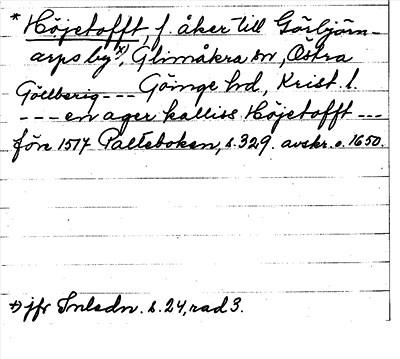 * Höjetofft, f. åker till Görbjörn-
arps by x), Glimåkra sn, Östra
Göllberig --- Göinge hd, Krist. l.
--- en ager kalliss Höjetofft ---
före 1517 Palteboken, s. 329. avskr. o. 1650.
x) jfr Snlsdn. s. 24, rad 3.